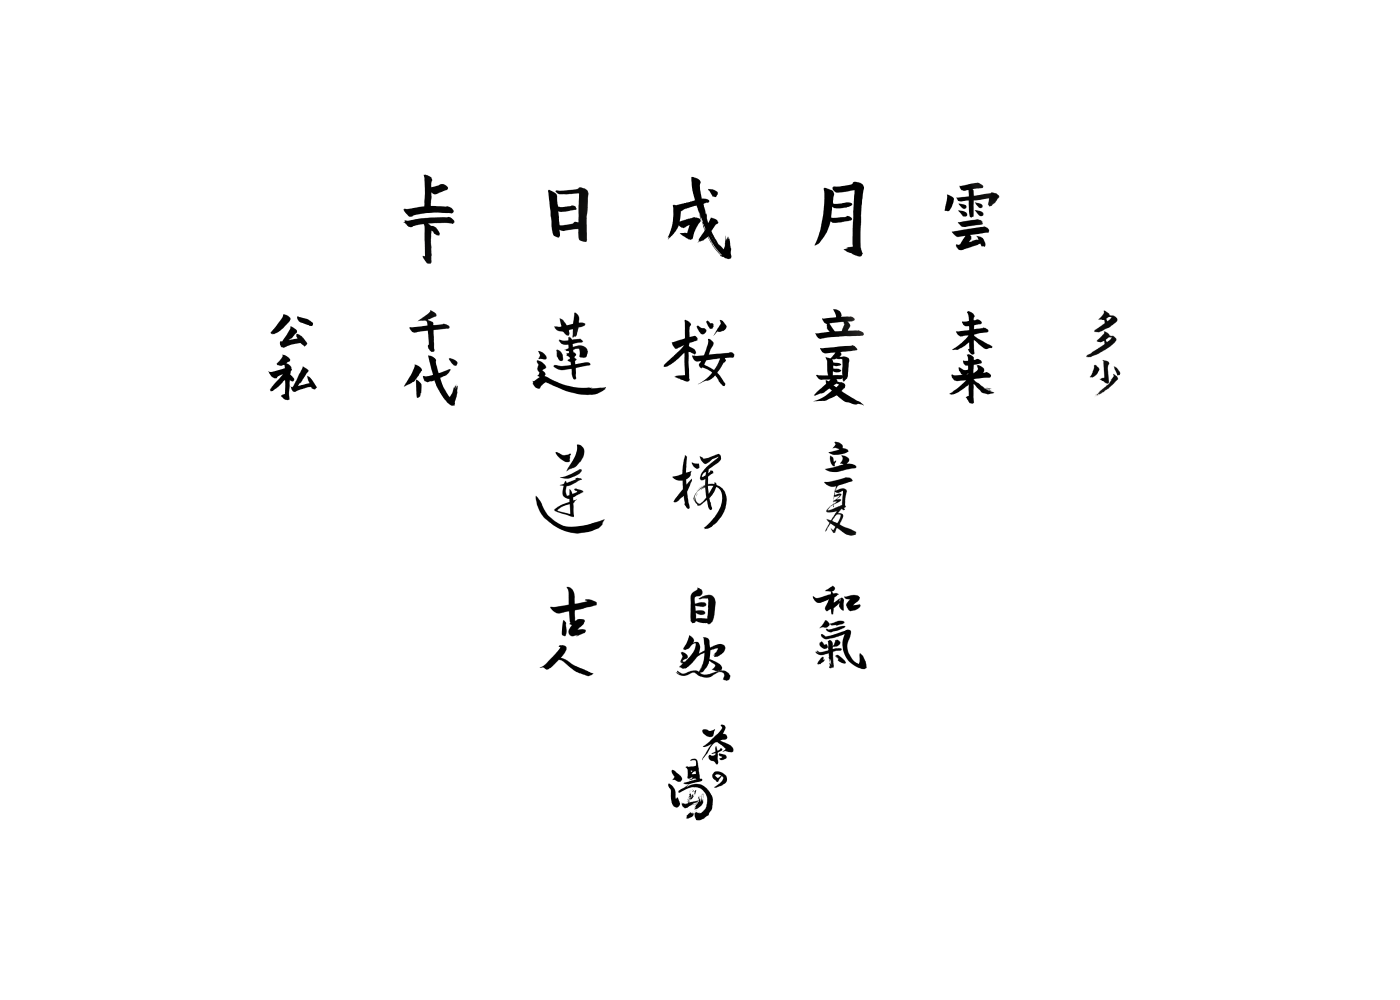 上下 日 成 月 雲
公私 千代 蓮 桜 立夏 未来 多少
蓮 桜 立夏
古人 自然 和氣
茶の湯